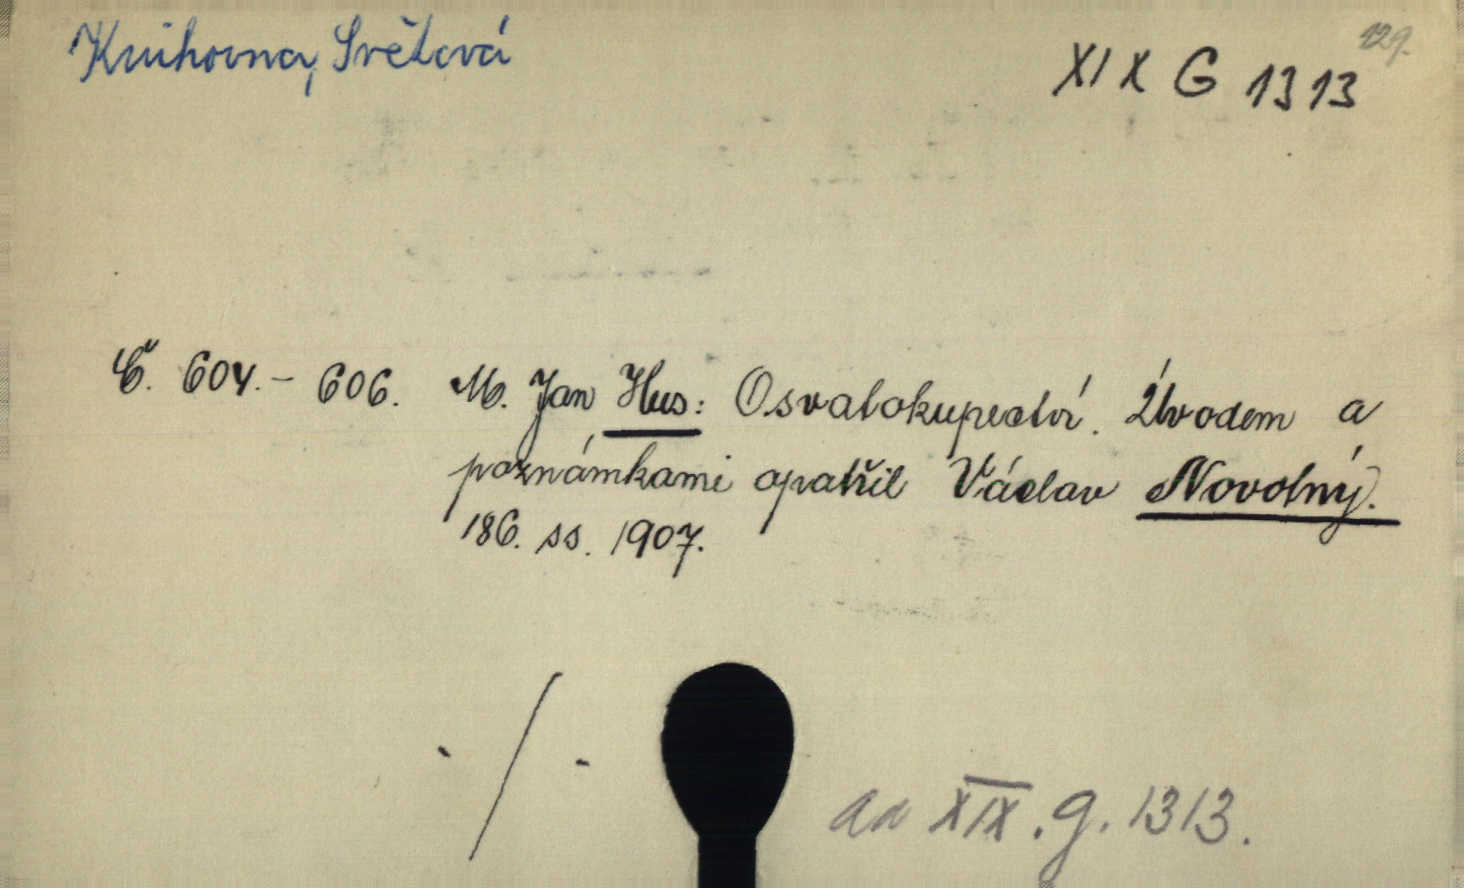 Knihovna, Světová
129.
XIX G 1313
Č. 604.- 606. M. Jan Hus: O svatokupectví. Úvodem a
poznámkami opatřil Václav Novotný.
186. ss. 1907.
-/-
ad XIX. g. 1313.